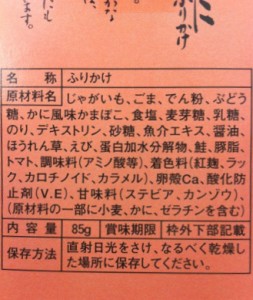 かに
ふりかけ
名称 ふりかけ
原材料名 じゃがいも、ごま、でん粉、ぶどう
糖、かに風味かまぼこ、食塩、麦芽糖、乳糖、
のり、デキストリン、砂糖、魚介エキス、醤油、
ほうれん草、えび、蛋白加水分解物、鮭、豚脂、
トマト、調味料(アミノ酸等)、着色料(紅麹、ラック
、カロチノイド、カラメル)、卵殻Ca、酸化防
止剤(V.E)、甘味料(ステビア、カンゾウ)、
(原材料の一部に小麦、かに、ゼラチンを含む)
内容量 85g 賞味期限 枠外下部記載
保存方法 直射日光をさけ、なるべく乾燥し
た場所に保存してください。